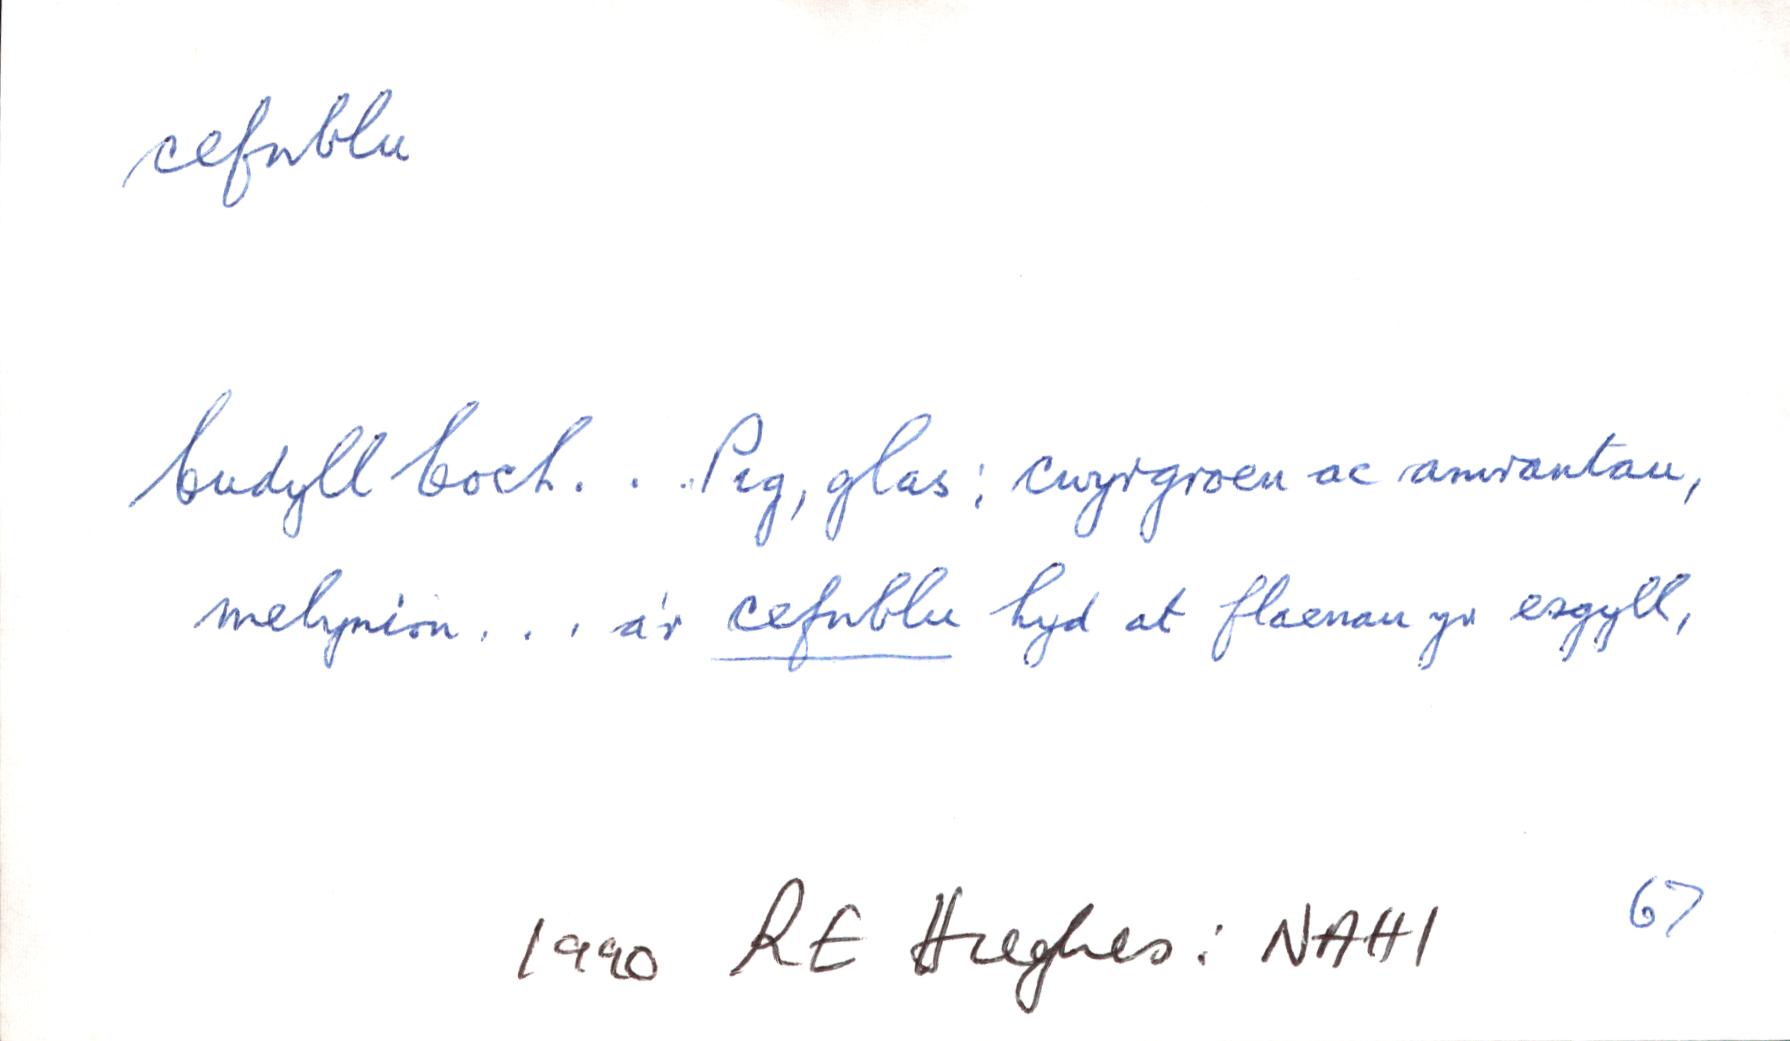 cefnblu
Cudyll Coch. . . Pig, glas; cwyrgroen ac amrantau,
melynion. . . a'r cefnblu hyd at flaenau yr esgyll,
67
1990 RE Hughes: NAHI